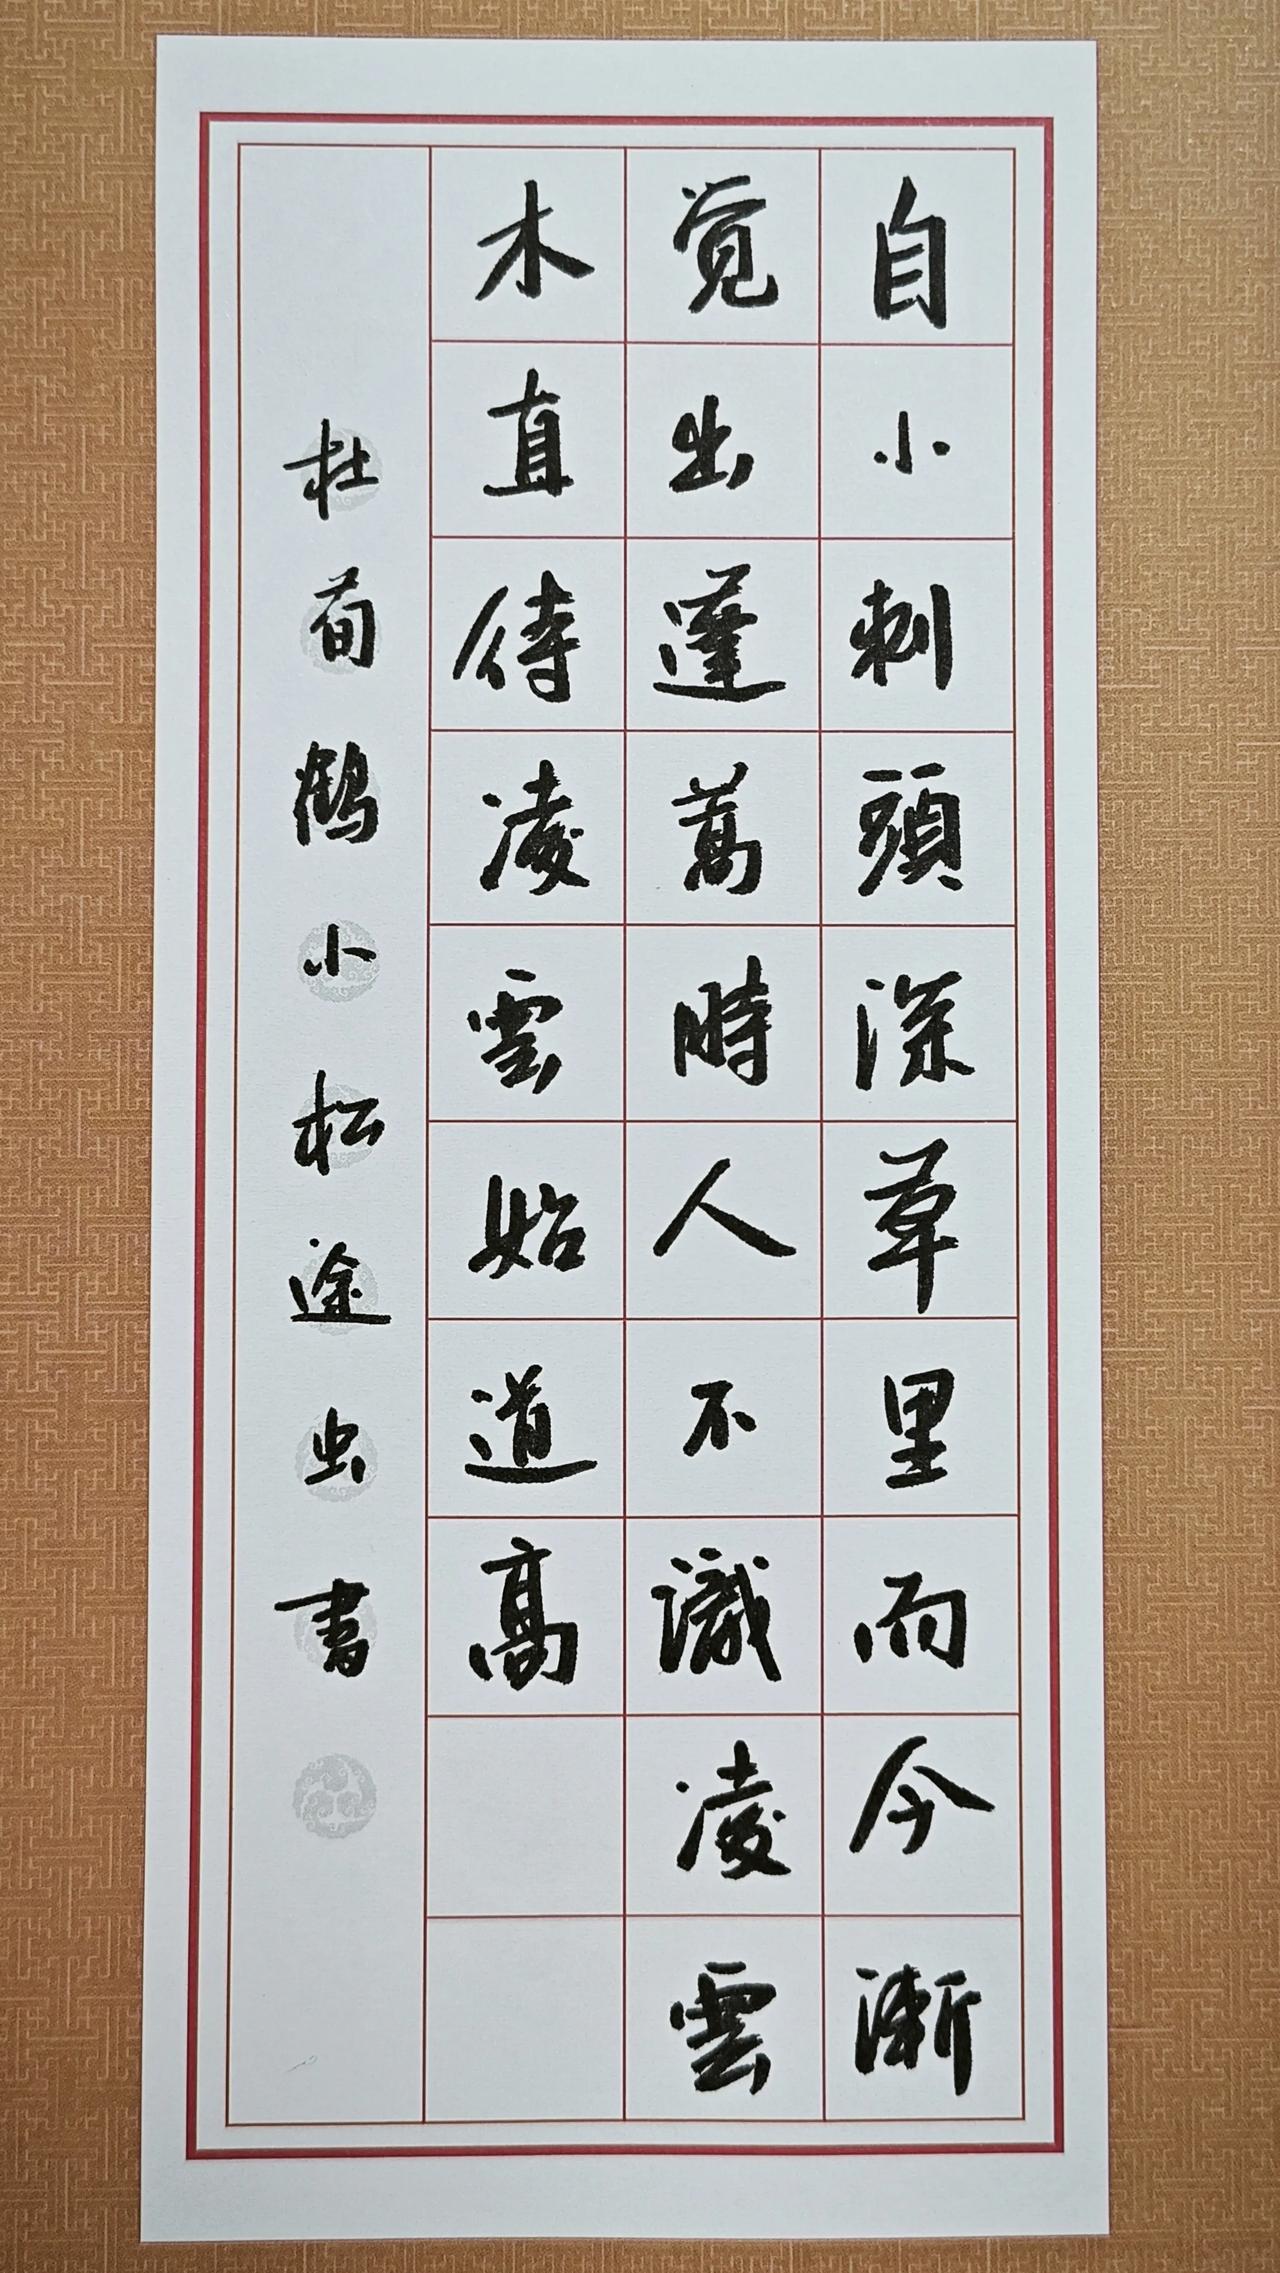 自小刺頭深草里而今漸
覚出蓬蒿時人不識凌雲
木直待凌雲始道高
杜荀鶴小松途虫書